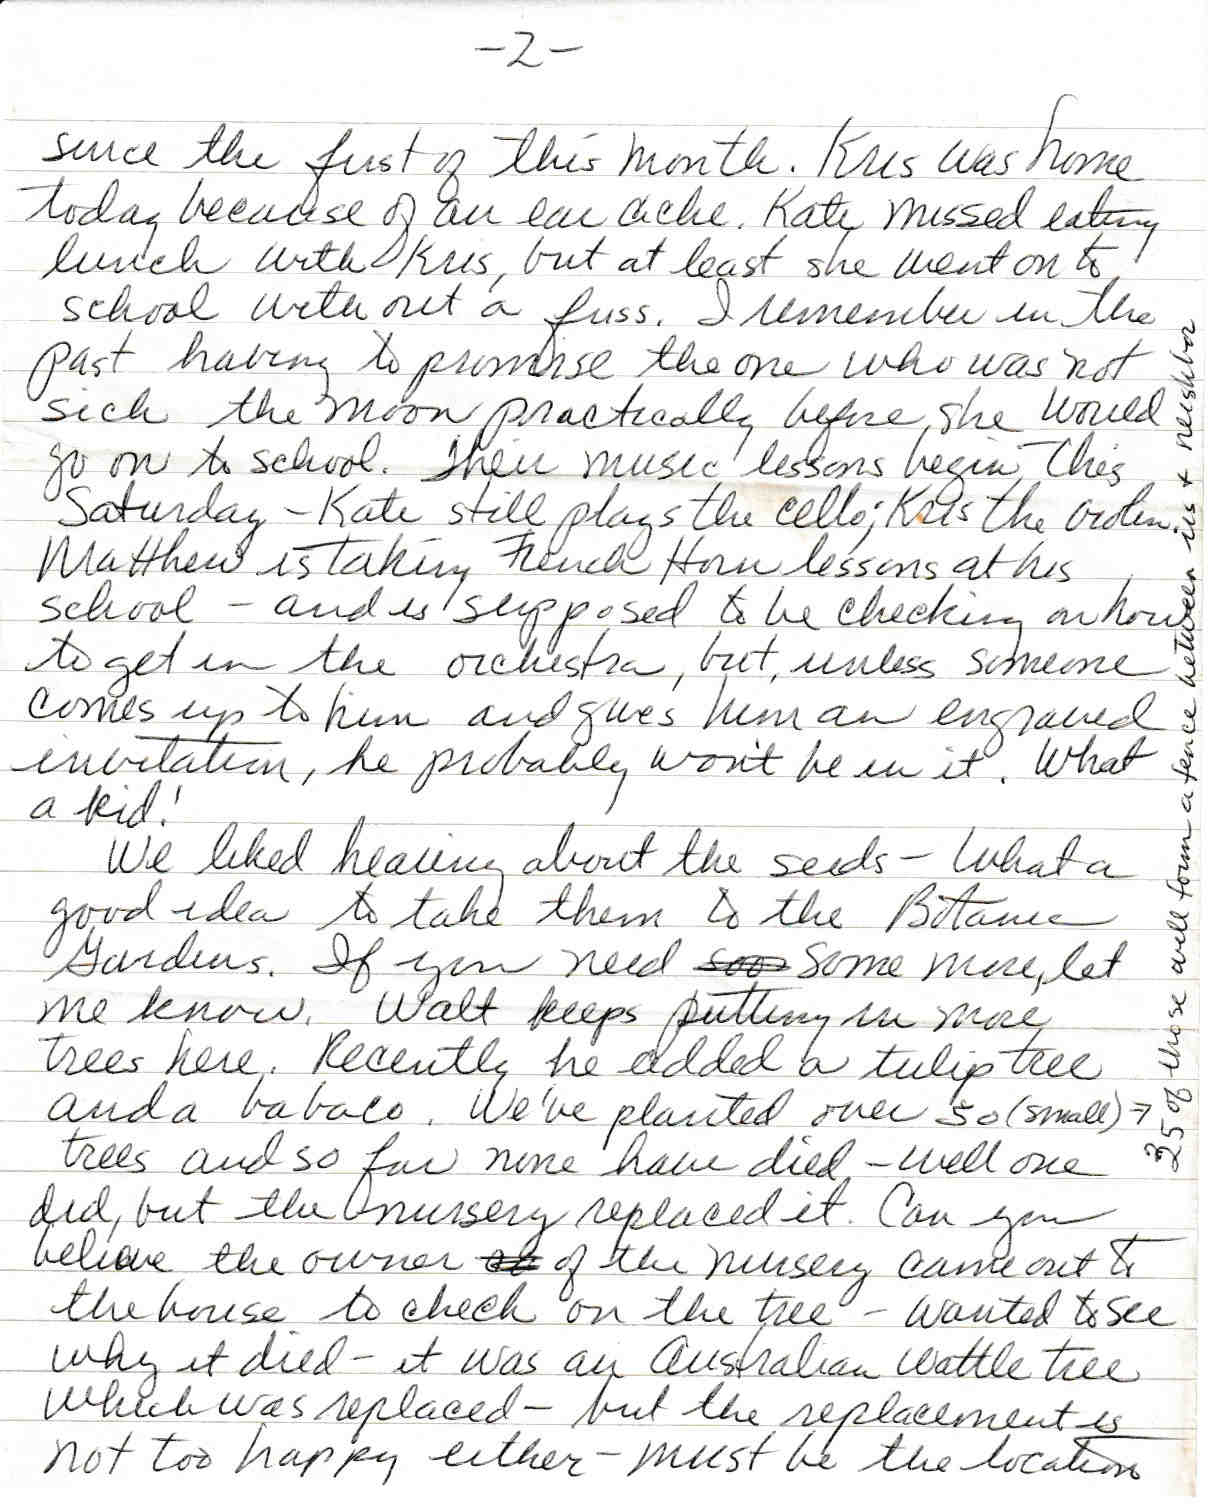 -2-
since the first of this month. Kris was home
today because of an ear ache. Kate missed eating
lunch with Kris, but at least she went on to
school without a fuss. I remember in the
past having to promise the one who was not
sick the moon practically before she would
go on to school. Their music lessons begin this
Saturday - Kate still plays the cello; Kris the violin.
Matthew is taking French Horn lessons at his
school - and is supposed to be checking on how
to get in the orchestra, but, unless someone
comes up to him and gives him an engraved
invitation, he probably won't be in it. What
a kid!
We liked hearing about the seeds - What a
good idea to take them to the Botanic
Gardens. If you need soo some more, let
me know. Walt keeps putting in more
trees here. Recently he added a tulip tree
and a babaco. We've planted over 50 (small) →
trees and so far none have died - well one
did, but the nursery replaced it. Can you
believe the owner of the nursery came out to
the house to check on the tree - wanted to see
why it died - it was an Australian Wattle tree
which was replaced - but the replacement is
not too happy either - must be the location
25 of those will form a fence between us + neighbor